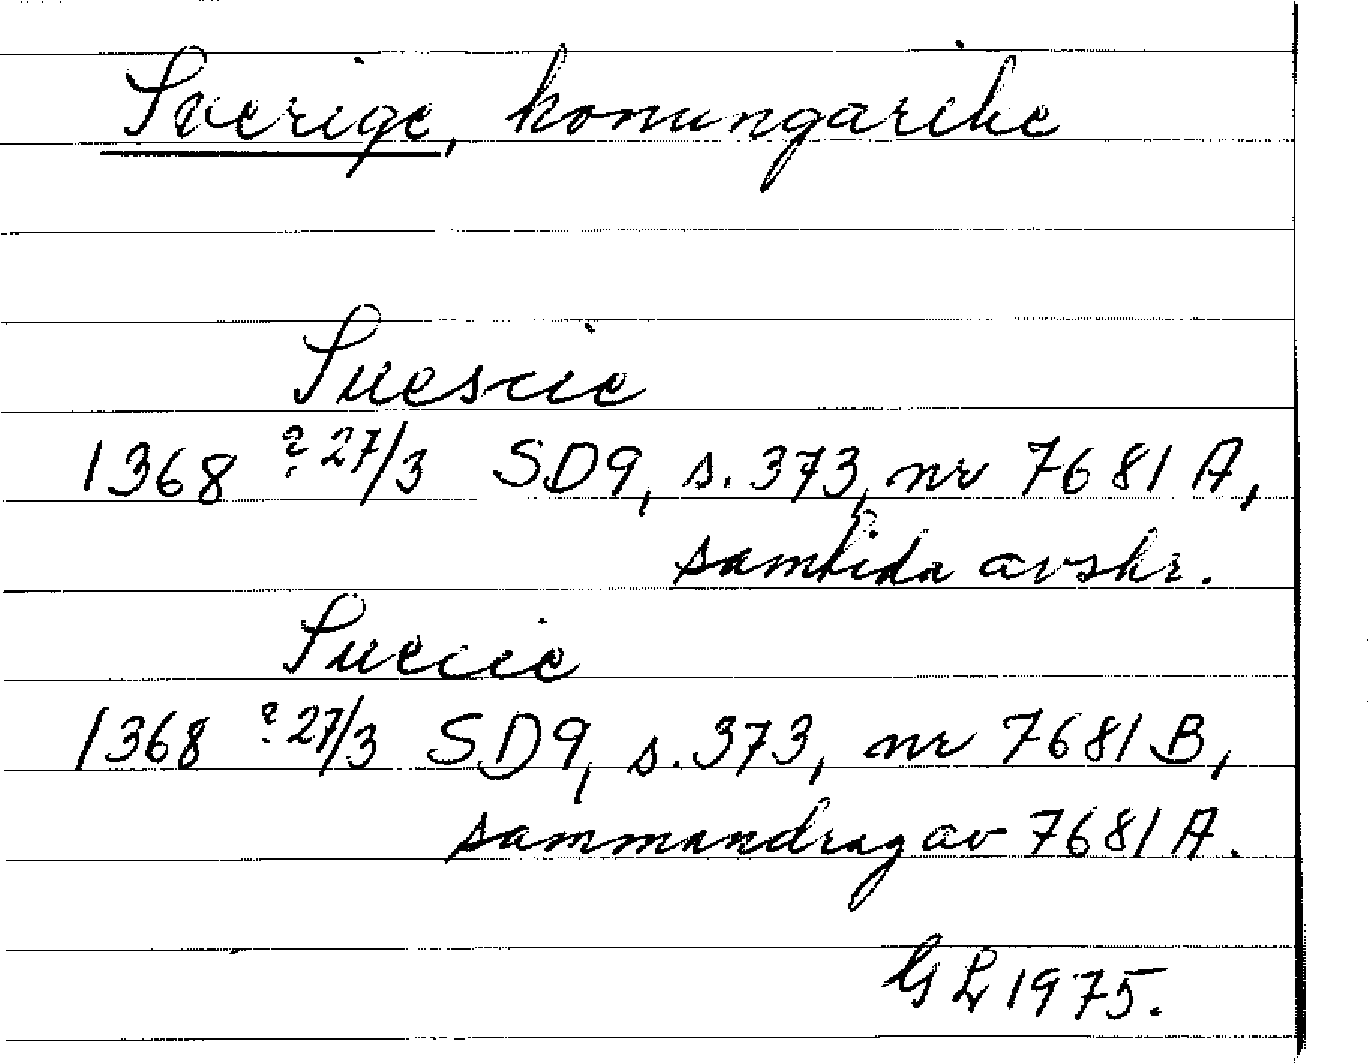 Sverige, konungarike
Suescie
1368 ? 27/3 SD9, s. 373, nr 7681 A,
samtida avskr.
Suecie
1368 ? 27/3 SD9, s. 373, nr 7681 B,
sammandrag av 7681 A.
GL 1975.